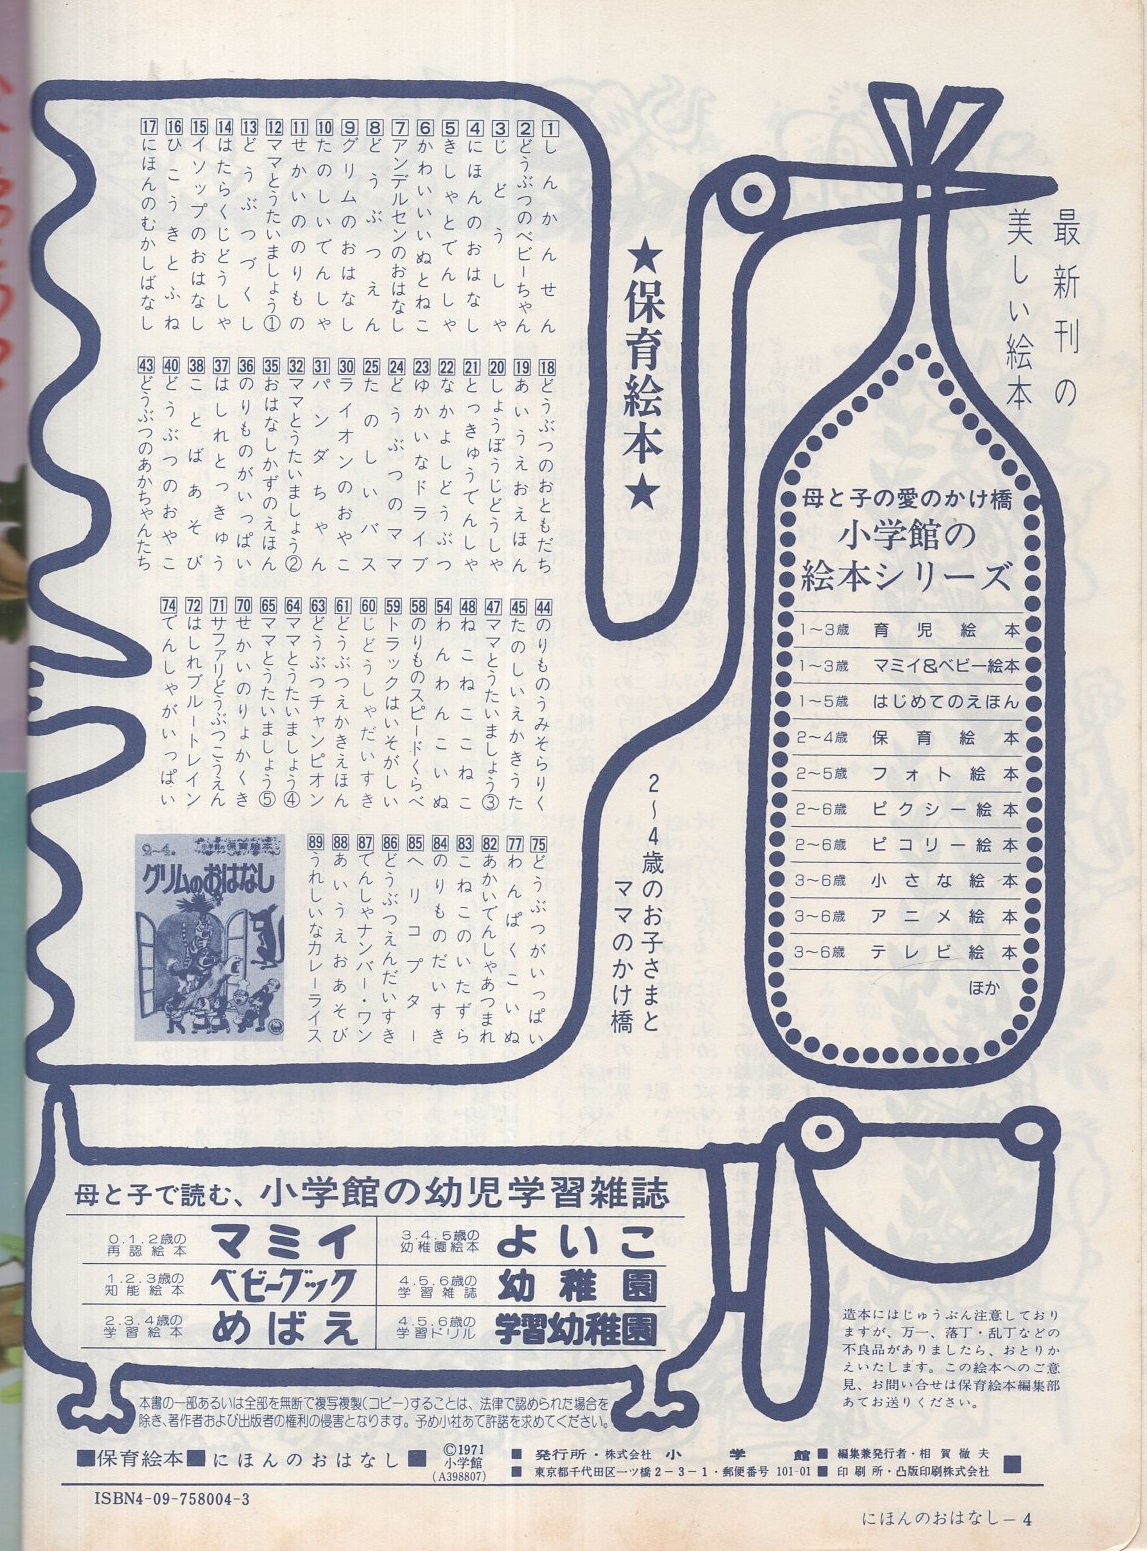 最新刊の
美しい絵本
母と子の愛のかけ橋
小学館の
絵本シリーズ
1〜3歳 育児絵本
1〜3歳 マミイ&ベビー絵本
1〜5歳 はじめてのえほん
2〜4歳 保育絵本
2〜5歳 フォト絵本
2〜6歳 ピクシー絵本
2〜6歳 ピコリー絵本
3〜6歳 小さな絵本
3〜6歳 アニメ絵本
3〜6歳 テレビ絵本
ほか
★保育絵本★
2〜4歳のお子さまと
ママのかけ橋
1 しんかんせん
2 どうぶつのベビーちゃん
3 じどうしゃ
4 にほんのおはなし
5 きしゃとでんしゃ
6 かわいいいぬとねこ
7 アンデルセンのおはなし
8 どうぶつえん
9 グリムのおはなし
10 たのしいでんしゃ
11 せかいののりもの
12 ママとうたいましょう①
13 どうぶつづくし
14 はたらくじどうしゃ
15 イソップのおはなし
16 ひこうきとふね
17 にほんのむかしばなし
18 どうぶつのおともだち
19 あいうえおえほん
20 しょうぼうじどうしゃ
21 とっきゅうでんしゃ
22 なかよしどうぶつ
23 ゆかいなドライブ
24 どうぶつのママ
25 たのしいバス
30 ライオンのおやこ
31 パンダちゃん
32 ママとうたいましょう②
35 おはなしかずのえほん
36 のりものがいっぱい
37 はしれとっきゅう
38 ことばあそび
40 どうぶつのおやこ
43 どうぶつのあかちゃんたち
44 のりものうみそらりく
45 たのしいえかきうた
47 ママとうたいましょう③
48 ねこねここねこ
54 わんわんこいぬ
58 のりものスピードくらべ
59 トラックはいそがしい
60 じどうしゃだいすき
61 どうぶつえかきえほん
63 どうぶつチャンピオン
64 ママとうたいましょう④
65 ママとうたいましょう⑤
70 せかいのりょかくき
71 サファリどうぶつこうえん
72 はしれブルートレイン
74 でんしゃがいっぱい
75 どうぶつがいっぱい
77 わんぱくこいぬ
82 あかいでんしゃあつまれ
83 こねこのいたずら
84 のりものだいすき
85 ヘリコプター
86 どうぶつえんだいすき
87 でんしゃナンバー・ワン
88 あいうえおあそび
89 うれしいなカレーライス
2〜4歳 小学館の保育絵本
グリムのおはなし
母と子で読む、小学館の幼児学習雑誌
0.1.2歳の再認絵本 マミイ
1.2.3歳の知能絵本 ベビーブック
2.3.4歳の学習絵本 めばえ
3.4.5歳の幼稚園絵本 よいこ
4.5.6歳の学習雑誌 幼稚園
4.5.6歳の学習ドリル 学習幼稚園
造本にはじゅうぶん注意しており
ますが、万一、落丁・乱丁などの
不良品がありましたら、おとりか
えいたします。この絵本へのご意
見、お問い合せは保育絵本編集部
あてお送りください。
本書の一部あるいは全部を無断で複写複製(コピー)することは、法律で認められた場合を
除き、著作者および出版者の権利の侵害となります。予め小社あて許諾を求めてください。
■保育絵本■にほんのおはなし■
©1971
小学館
(A398807)
■発行所・株式会社 小学館
■東京都千代田区一ツ橋2-3-1・郵便番号 101-01
■編集兼発行者・相賀徹夫
■印刷所・凸版印刷株式会社
ISBN4-09-758004-3
にほんのおはなし—4